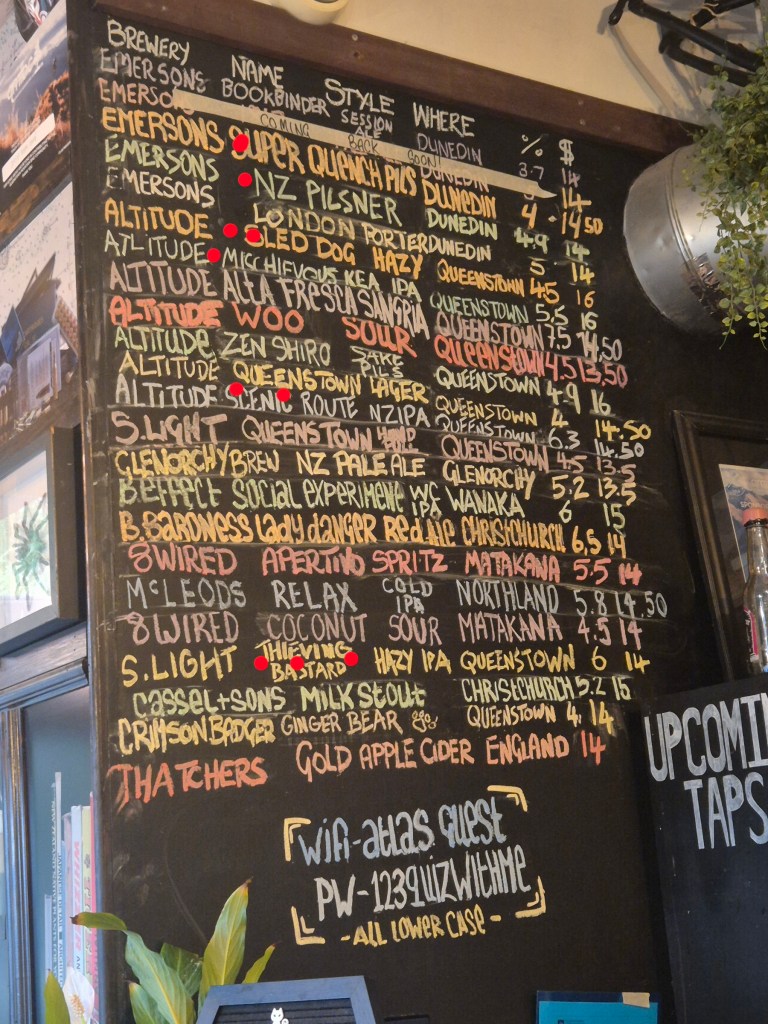 BREWERY NAME STYLE WHERE % $
EMERSONS BOOKBINDER SESSION ALE DUNEDIN 3.7 14
EMERSO COMING BACK SOON! DUNEDIN 14
EMERSONS SUPER QUENCH PILS DUNEDIN 4 14.50
EMERSONS NZ PILSNER DUNEDIN 4.9 14
EMERSONS LONDON PORTER DUNEDIN 5 14
ALTITUDE SLED DOG HAZY QUEENSTOWN 4.5 16
ATLITUDE MICCHIEFVOUS KEA IPA QUEENSTOWN 5.5 16
ALTITUDE ALTA FRESTA SANGRIA QUEENSTOWN 7.5 14.50
ALTITUDE WOO SOUR QUEENSTOWN 4.5 13.50
ALTITUDE ZEN SHIRO SAKE PILS QUEENSTOWN 4.9 16
ALTITUDE QUEENSTOWN LAGER QUEENSTOWN 4 14.50
ALTITUDE SCENIC ROUTE NZIPA QUEENSTOWN 6.3 14.50
S.LIGHT QUEENSTOWN QUEENSTOWN 4.5 13.5
GLENORCHY BREW NZ PALE ALE GLENORCHY 5.2 13.5
B.EFFECT SOCIAL EXPERIMENT WC IPA WANAKA 6 15
B.BARONESS LADY DANGER RED ALE CHRISTCHURCH 6.5 14
8WIRED APERTIVO SPRITZ MATAKANA 5.5 14
MCLEODS RELAX COLD IPA NORTHLAND 5.8 14.50
8WIRED COCONUT SOUR MATAKANA 4.5 14
S.LIGHT THIEVING BASTARD HAZY IPA QUEENSTOWN 6 14
CASSEL+SONS MILK STOUT CHRISTCHURCH 5.2 15
CRIMSON BADGER GINGER BEAR QUEENSTOWN 4. 14
THATCHERS GOLD APPLE CIDER ENGLAND 14
WIFI-ATLAS GUEST
PW-1239UIZWITHME
-ALL LOWER CASE-
UPCOMIN
TAPS